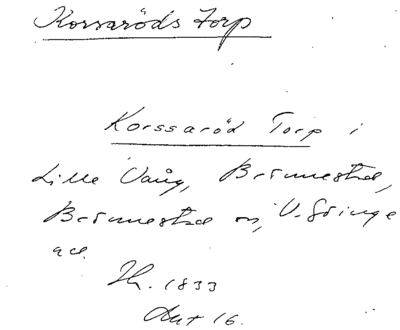 Korsaröds Torp
Korssaröd Torp i
Lille Vång, Brönnestad,
Brönnestad sn, V. Göinge
Th. 1833
Akt 16.